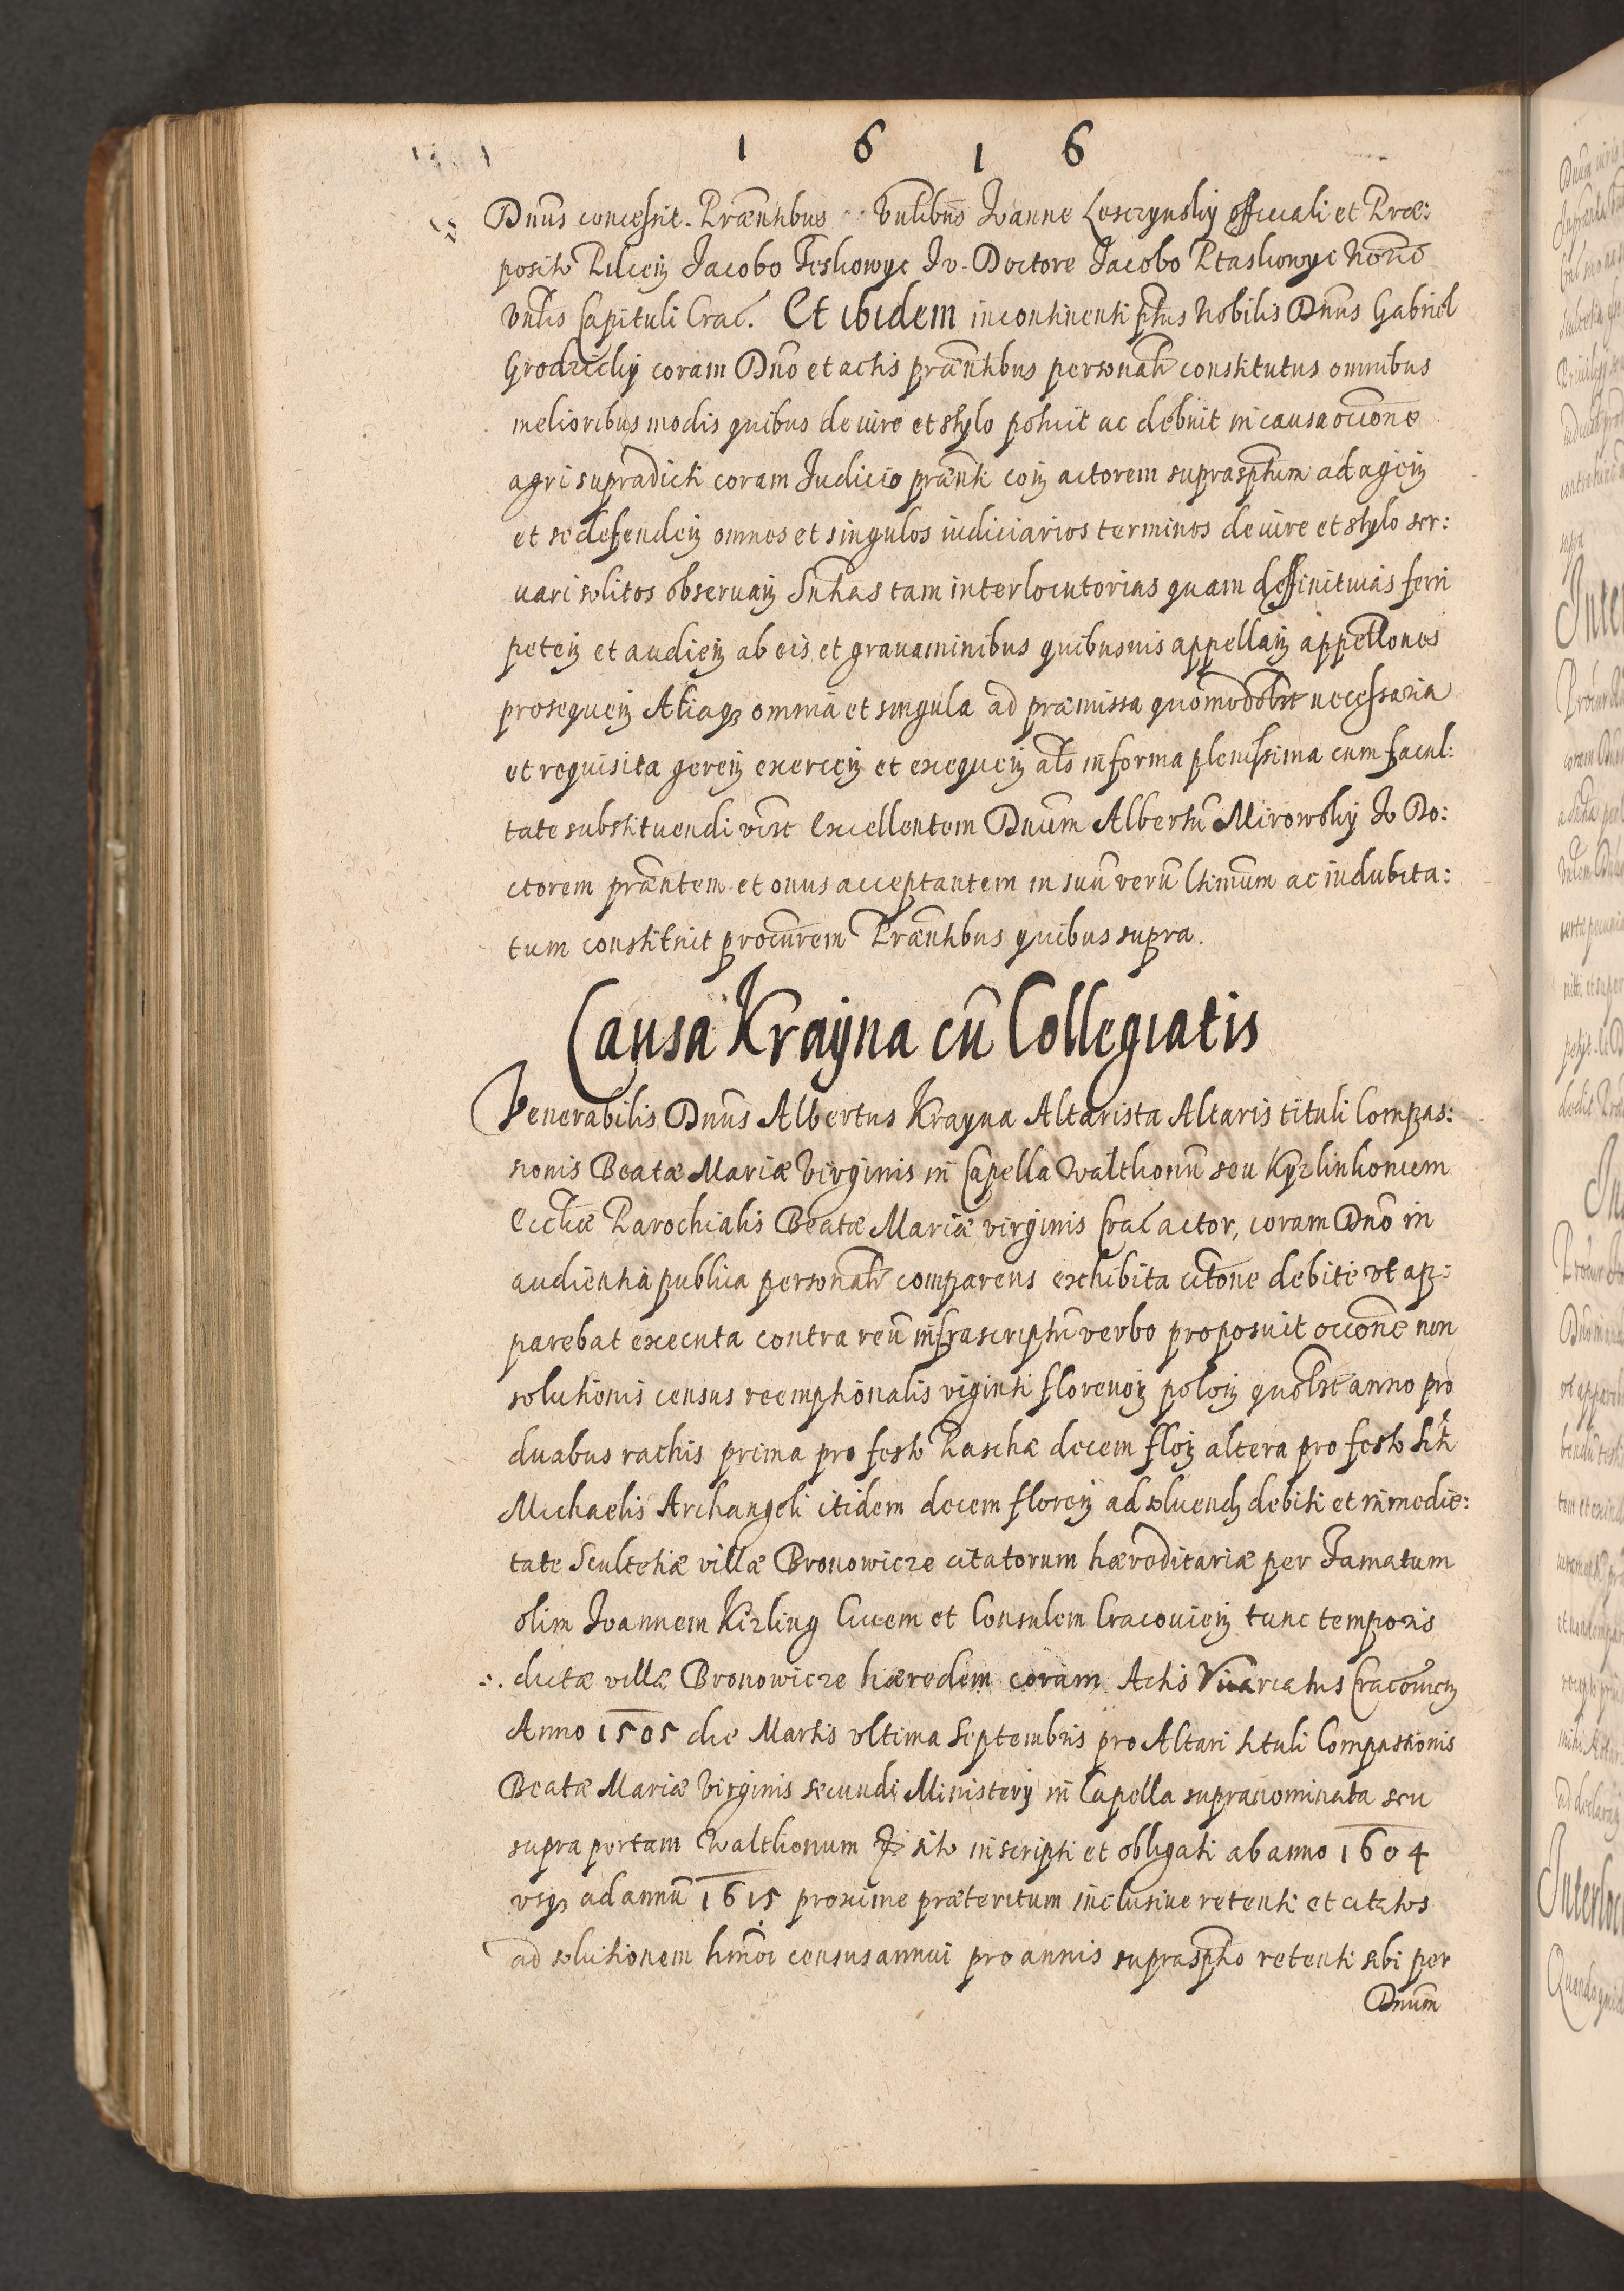 1 6 1 6
Dnūs concessit. Præntibus Vnlibus Ioanne Lesczynskÿ officiali et Præ:
posito Pilcen Iacobo Feskowyc Iv. Doctore Iacobo Ptaskowyc Nōrio
Vnlis Capituli Crac. Et ibidem incontinenti ptus Nobilis Dnūs Gabriel
Grodzickÿ coram Dnō et actis præntibus personalr constitutus omnibus
melioribus modis quibus de iure et stylo potuit ac debuit in causa occōne
agri supradicti coram Iudicio prænti coīz actorem suprasptum ad agēn
et se defendēn omnes et singulos iudiciarios terminos de iure et stylo ser:
uari solitos obseruan̄ Sntias tam interlocutorias quam deffinitiuas ferri
petēn et audiēn ab eis et grauaminibus quibusuis appellan̄ appellōnes
prosequēn Aliaqz omnia et singula ad præmissa quomodolbt necessaria
et requisita gerēn exercēn et exequēn als in forma plenissima cum facul:
tate substituendi Excellentem Dnūm Albertū Mirowskÿ Iv Do:
ctorem præntem et onus acceptantem in suū verū Ltimum ac indubita:
tum constituit procūrem Præntibus quibus supra.
Causa Krayna cū Collegiatis
Venerabilis Dnūs Albertus Krayna Altarista Altaris tituli Compas:
sionis Beatæ Mariæ Virginis in Capella Walthonū seu Kyzlinkonum
Eccliæ Parochialis Beatæ Mariæ virginis Crac actor, coram Dnō in
audientia publica personalr comparens exhibita citōne debite vt ap:
parebat executa contra reū infrascriptū verbo proposuit occōne non
solutionis census reemptionalis viginti florenoīz poloīz quolbt anno pro
duabus ratis prima pro festo Paschæ decem floīz altera pro festo Sti
Michaelis Archangeli itidem decem florēn ad soluend debiti et in medie:
tate Scultetiæ villæ Bronowicze citatorum hæreditariæ per Famatum
olim Ioannem Kizling Ciuem et Consulem Cracouien tunc temporis
∴ dictæ villæ Bronowicze hæredem coram Actis Vicariatus Cracouien
Anno 1505 die Martis vltima Septembris pro Altari tituli Compassionis
Beatæ Mariæ Virginis secundi Ministerÿ in Capella supranominata seu
supra portam Walthonum sito inscripti et obligati ab anno 1604
vsqz ad annū 1615 proxime præteritum inclusiue retenti et citatos
ad solutionem hmōi census annui pro annis supraspto retenti sibi per
Dnūm